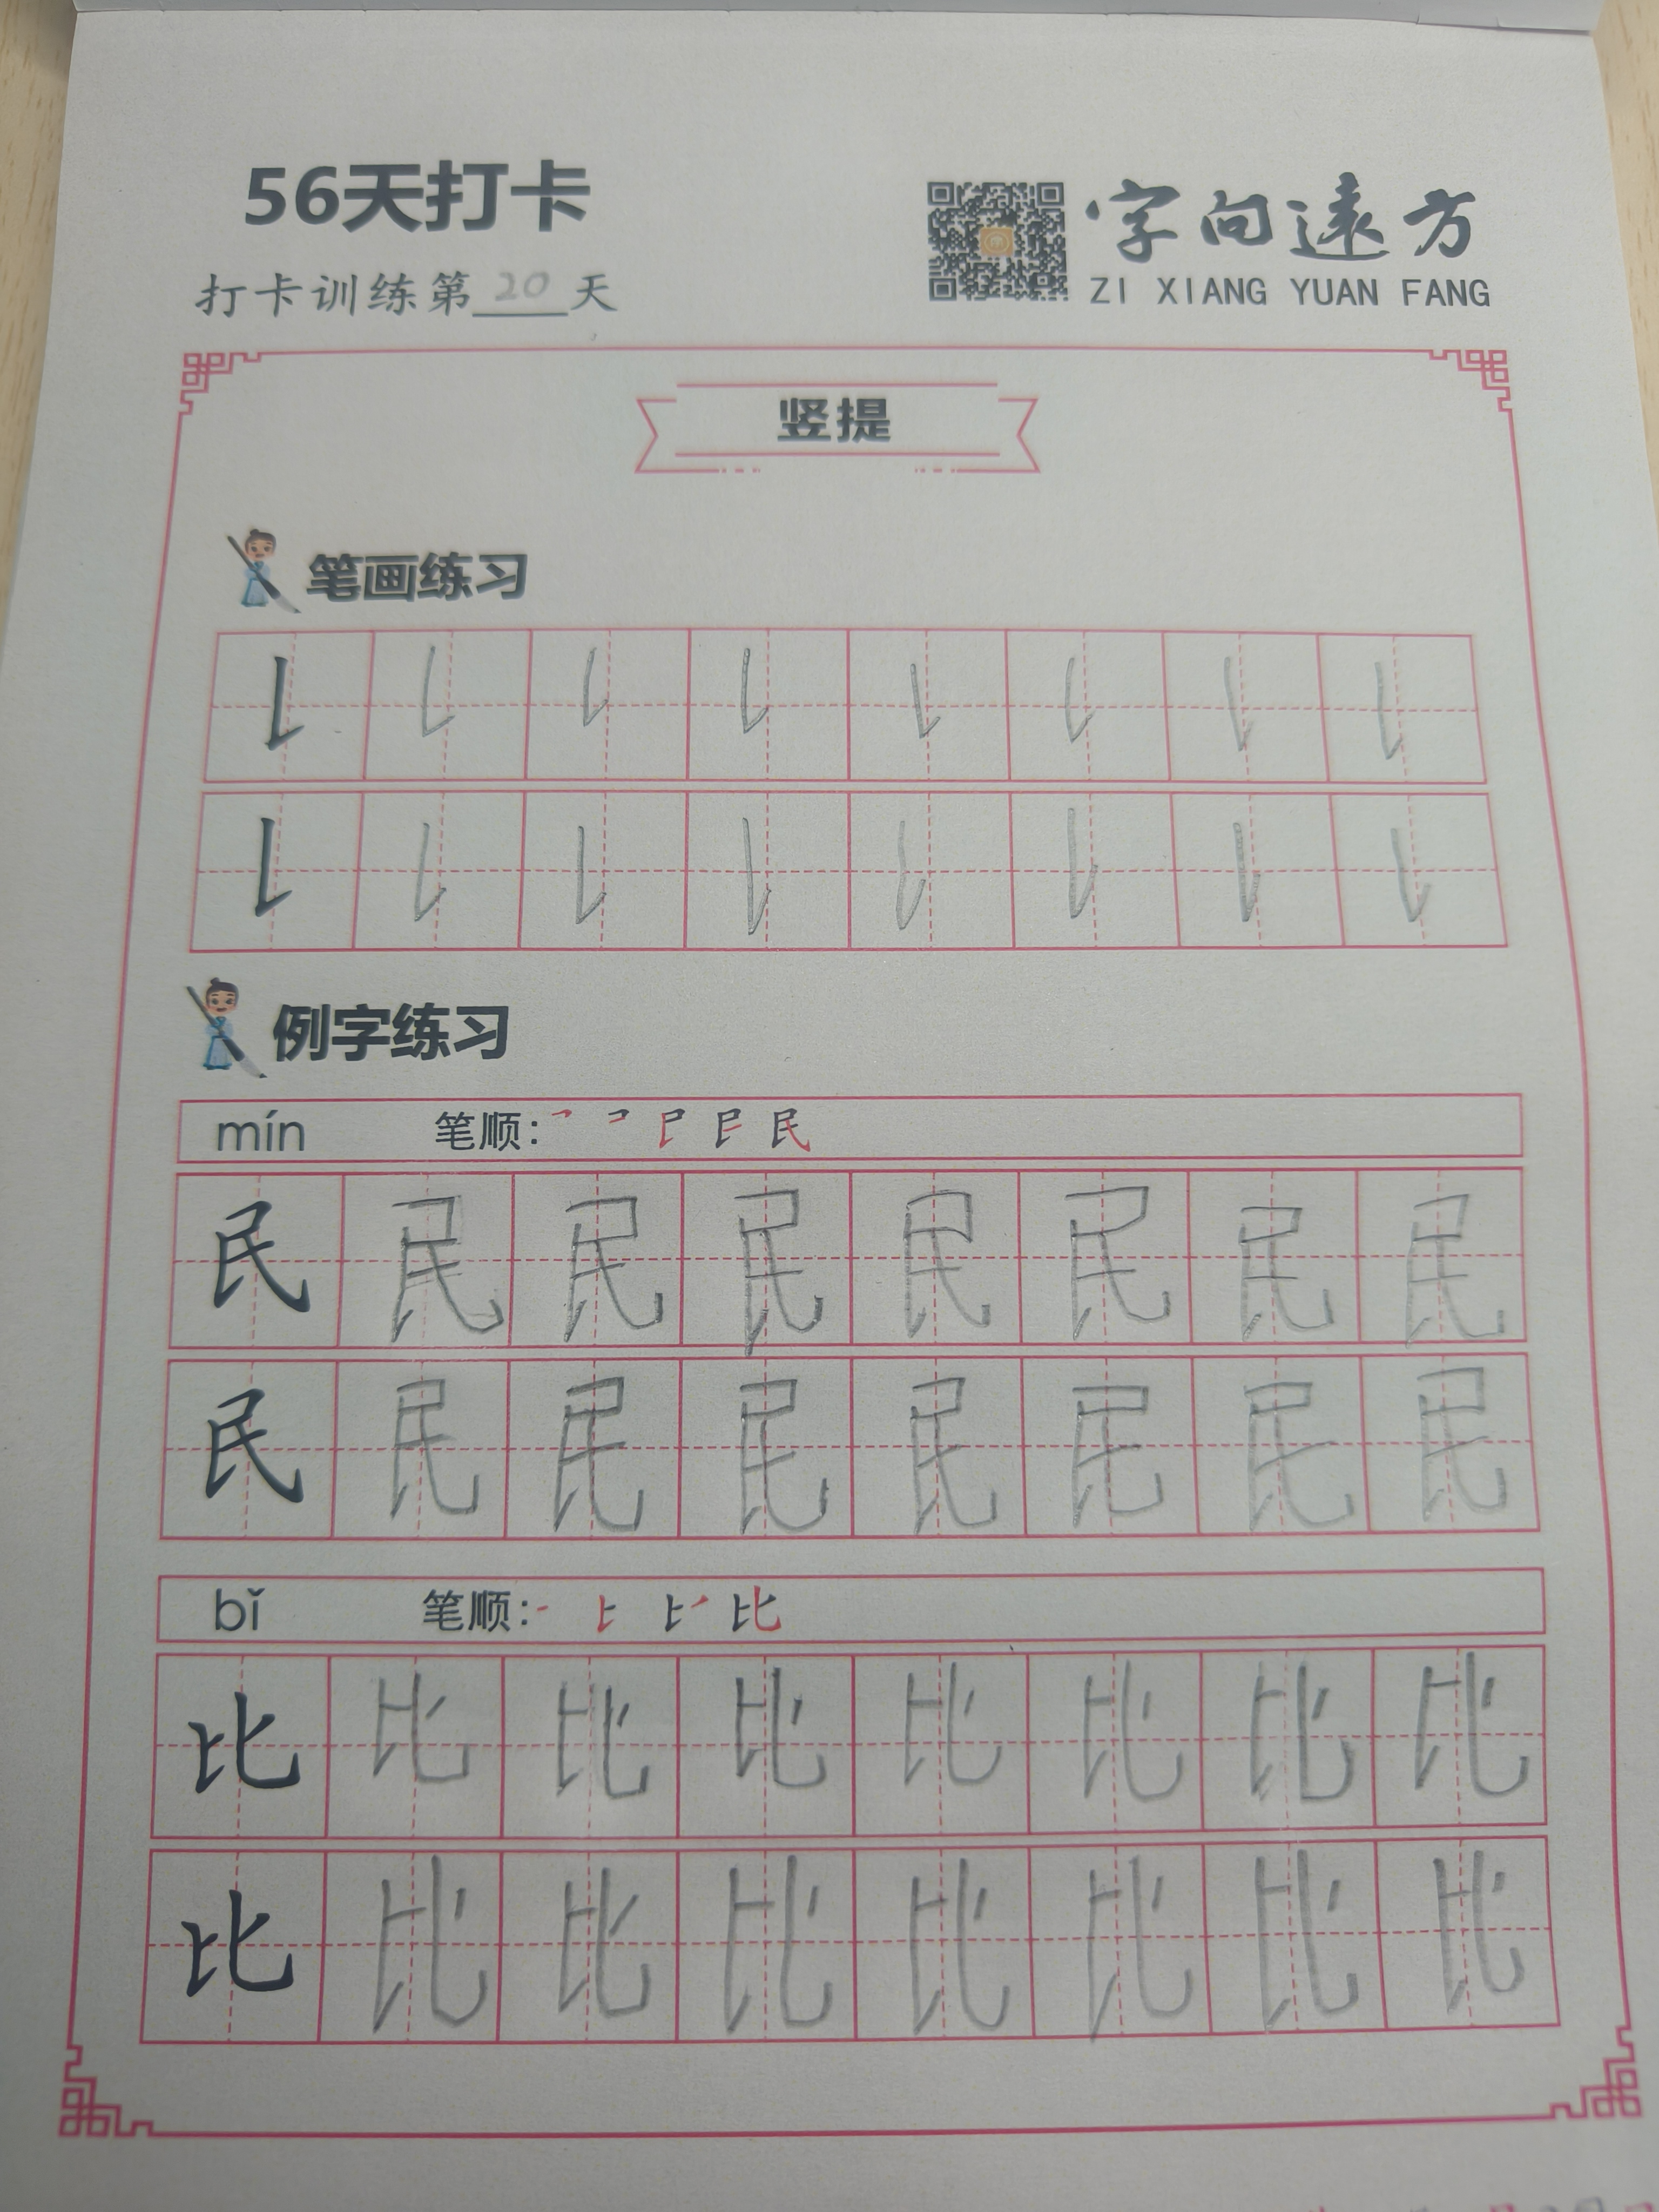 56天打卡
字向遠方
ZI XIANG YUAN FANG
打卡训练第20天
竖提
笔画练习
例字练习
mín 笔顺: 民
民民民民民民民民
民民民民民民民民
bǐ 笔顺: 比
比比比比比比比比
比比比比比比比比